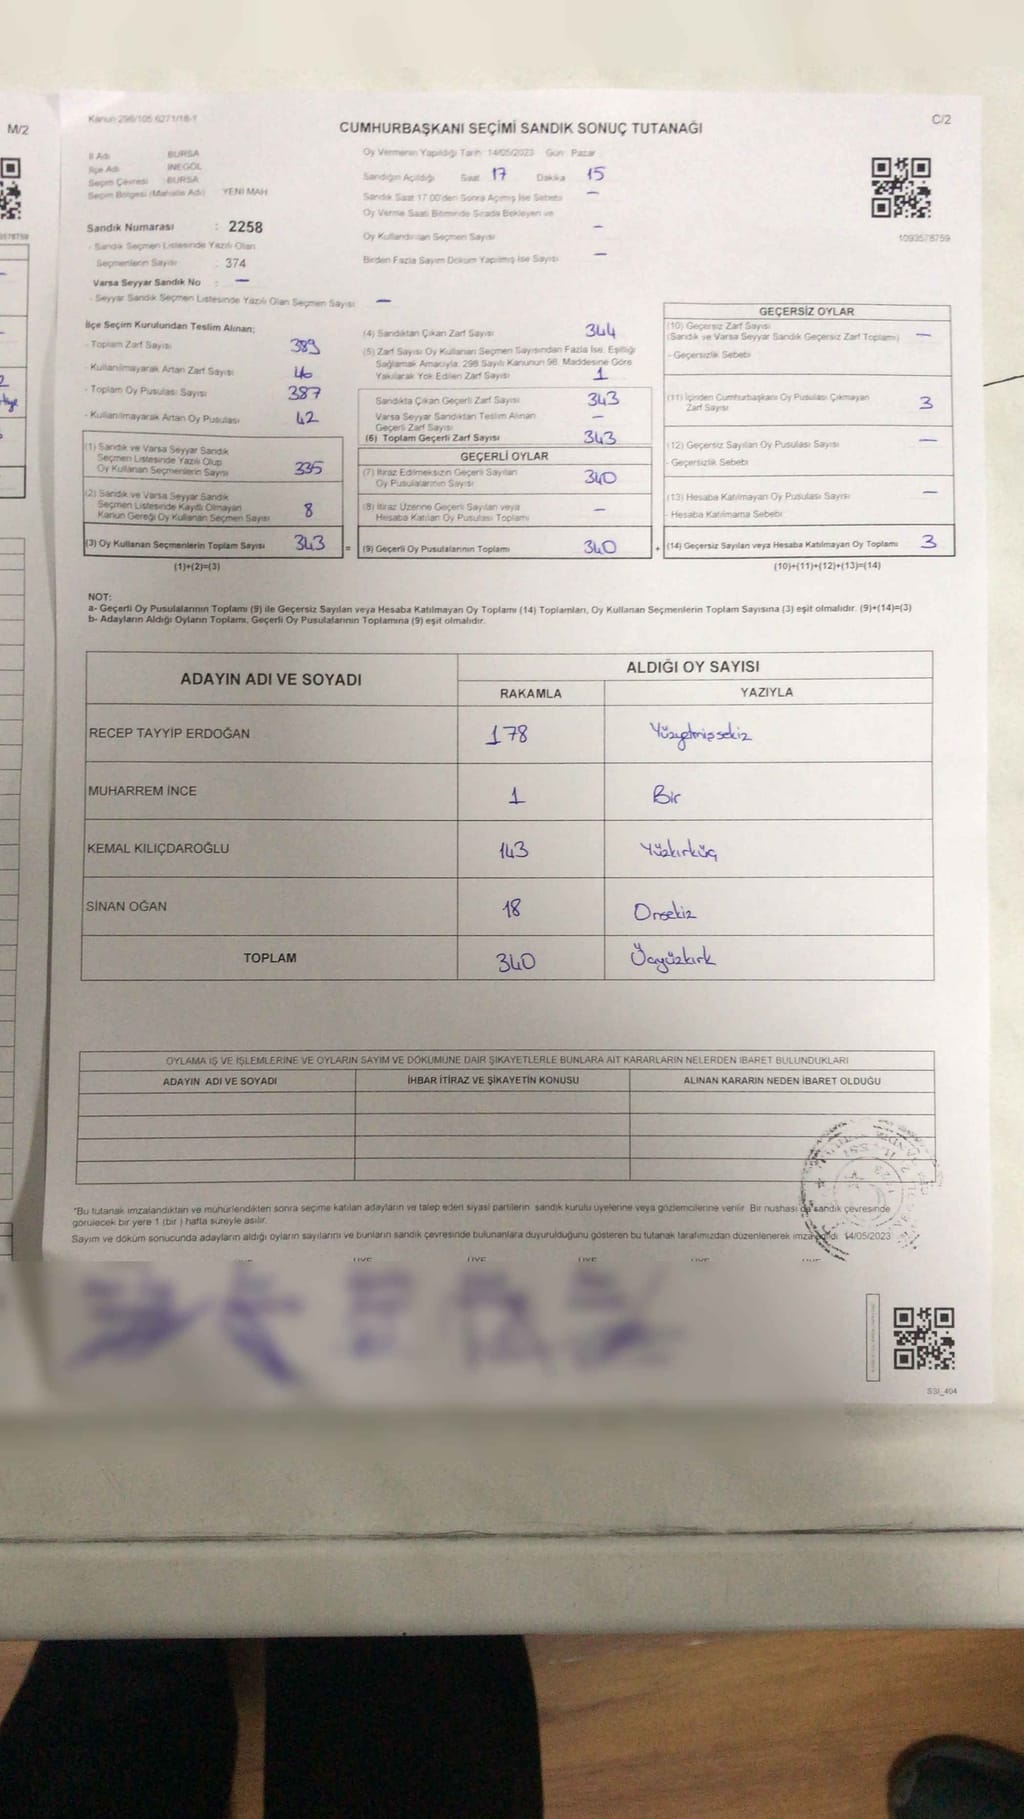 M/2
Kanun 298/105 6271/18-1
C/2
CUMHURBAŞKANI SEÇİMİ SANDIK SONUÇ TUTANAĞI
İl Adı BURSA
İlçe Adı İNEGÖL
Seçim Çevresi : BURSA
Seçim Bölgesi (Mahalle Adı) YENİ MAH
Sandık Numarası : 2258
- Sandık Seçmen Listesinde Yazılı Olan
Seçmenlerin Sayısı : 374
Varsa Seyyar Sandık No : —
- Seyyar Sandık Seçmen Listesinde Yazılı Olan Seçmen Sayısı —
Oy Vermenin Yapıldığı Tarih 14/05/2023 Gün Pazar
Sandığın Açıldığı Saat 17 Dakika 15
Sandık Saat 17:00'den Sonra Açılmış İse Sebebi —
Oy Verme Saati Bitiminde Sırada Bekleyen ve
Oy Kullandırılan Seçmen Sayısı —
Birden Fazla Sayım Döküm Yapılmış İse Sayısı —
1093578759
İlçe Seçim Kurulundan Teslim Alınan;
- Toplam Zarf Sayısı 389
- Kullanılmayarak Artan Zarf Sayısı 46
- Toplam Oy Pusulası Sayısı 387
- Kullanılmayarak Artan Oy Pusulası 42
(1) Sandık ve Varsa Seyyar Sandık
Seçmen Listesinde Yazılı Olup
Oy Kullanan Seçmenlerin Sayısı 335
(2) Sandık ve Varsa Seyyar Sandık
Seçmen Listesinde Kayıtlı Olmayan
Kanun Gereği Oy Kullanan Seçmen Sayısı 8
(3) Oy Kullanan Seçmenlerin Toplam Sayısı 343 =
(1)+(2)=(3)
(4) Sandıktan Çıkan Zarf Sayısı 344
(5) Zarf Sayısı Oy Kullanan Seçmen Sayısından Fazla İse, Eşitliği
Sağlamak Amacıyla, 298 Sayılı Kanunun 98. Maddesine Göre
Yakılarak Yok Edilen Zarf Sayısı 1
Sandıkta Çıkan Geçerli Zarf Sayısı 343
Varsa Seyyar Sandıktan Teslim Alınan
Geçerli Zarf Sayısı —
(6) Toplam Geçerli Zarf Sayısı 343
GEÇERLİ OYLAR
(7) İtiraz Edilmeksizin Geçerli Sayılan
Oy Pusulalarının Sayısı 340
(8) İtiraz Üzerine Geçerli Sayılan veya
Hesaba Katılan Oy Pusulası Toplamı —
(9) Geçerli Oy Pusulalarının Toplamı 340 +
GEÇERSİZ OYLAR
(10) Geçersiz Zarf Sayısı
(Sandık ve Varsa Seyyar Sandık Geçersiz Zarf Toplamı) —
- Geçersizlik Sebebi
(11) İçinden Cumhurbaşkanı Oy Pusulası Çıkmayan
Zarf Sayısı 3
(12) Geçersiz Sayılan Oy Pusulası Sayısı —
- Geçersizlik Sebebi
(13) Hesaba Katılmayan Oy Pusulası Sayısı —
- Hesaba Katılmama Sebebi
(14) Geçersiz Sayılan veya Hesaba Katılmayan Oy Toplamı 3
(10)+(11)+(12)+(13)=(14)
NOT:
a- Geçerli Oy Pusulalarının Toplamı (9) ile Geçersiz Sayılan veya Hesaba Katılmayan Oy Toplamı (14) Toplamları, Oy Kullanan Seçmenlerin Toplam Sayısına (3) eşit olmalıdır. (9)+(14)=(3)
b- Adayların Aldığı Oyların Toplamı, Geçerli Oy Pusulalarının Toplamına (9) eşit olmalıdır.
ADAYIN ADI VE SOYADI ALDIĞI OY SAYISI
RAKAMLA YAZIYLA
RECEP TAYYİP ERDOĞAN 178 Yüzyetmişsekiz
MUHARREM İNCE 1 Bir
KEMAL KILIÇDAROĞLU 143 Yüzkırküç
SİNAN OĞAN 18 Onsekiz
TOPLAM 340 Üçyüzkırk
OYLAMA İŞ VE İŞLEMLERİNE VE OYLARIN SAYIM VE DÖKÜMÜNE DAİR ŞİKAYETLERLE BUNLARA AİT KARARLARIN NELERDEN İBARET BULUNDUKLARI
ADAYIN ADI VE SOYADI İHBAR İTİRAZ VE ŞİKAYETİN KONUSU ALINAN KARARIN NEDEN İBARET OLDUĞU
*Bu tutanak imzalandıktan ve mühürlendikten sonra seçime katılan adayların ve talep eden siyasi partilerin sandık kurulu üyelerine veya gözlemcilerine verilir. Bir nushası da sandık çevresinde
görülecek bir yere 1 (bir ) hafta süreyle asılır.
Sayım ve döküm sonucunda adayların aldığı oyların sayılarını ve bunların sandık çevresinde bulunanlara duyurulduğunu gösteren bu tutanak tarafımızdan düzenlenerek imzalandı. 14/05/2023
SSİ_404